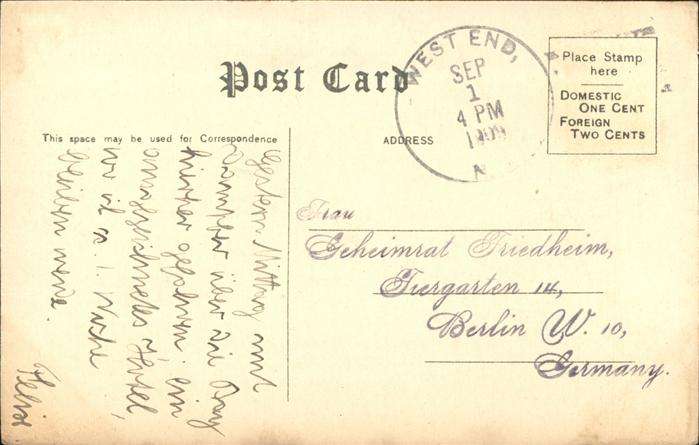 Post Card
WEST END,
SEP
1
4 PM
Place Stamp
here
DOMESTIC
ONE CENT
FOREIGN
TWO CENTS
This space may be used for Correspondence
ADDRESS
Frau
Geheimrat Friedheim,
Tiergarten 14,
Berlin W. 10,
Germany.
Gestern Mittag mit
Dampfer über die Bay
hierher gefahren. ein
ausgezeichnetes Hotel,
wo ich ca. 1 Woche
bleiben werde.
Felix